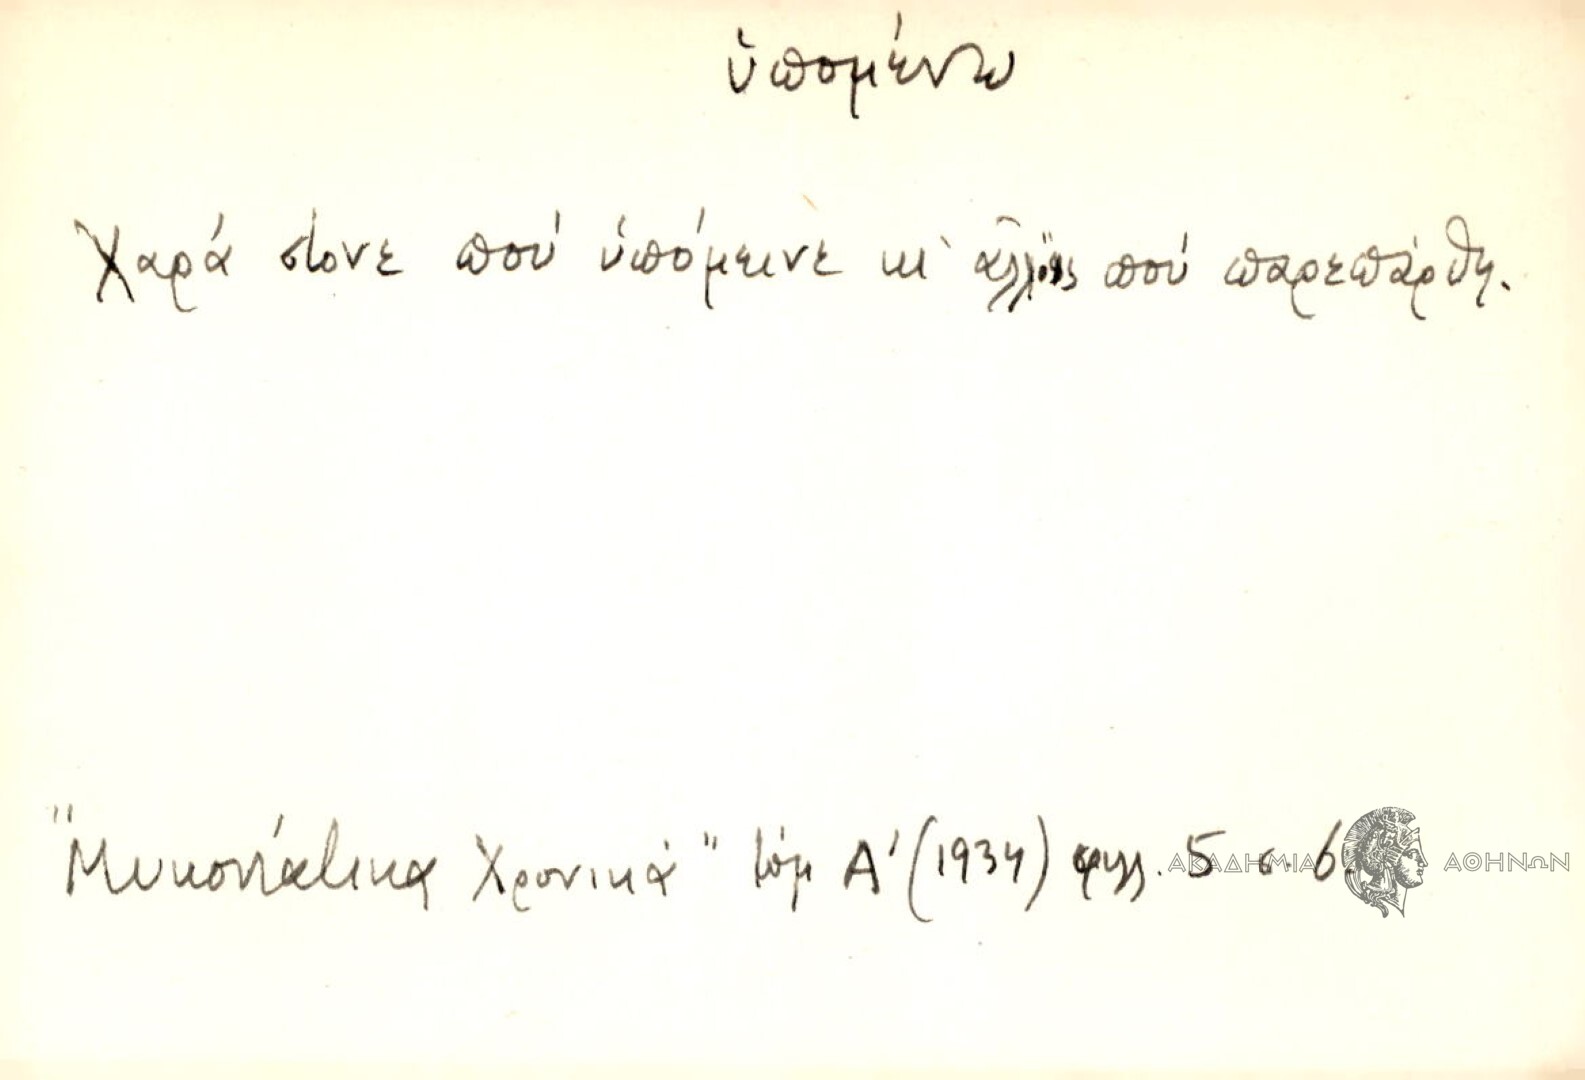 ὑπομένω
Χαρά στονε πού ὑπόμεινε κι' πού παρεπάρθη.
"Μυκονιάτικα Χρονικά" τόμ Α' (1934) φυλλ. 5 σ. 6.
ΑΚΑΔΗΜΙΑ ΑΘΗΝΩΝ